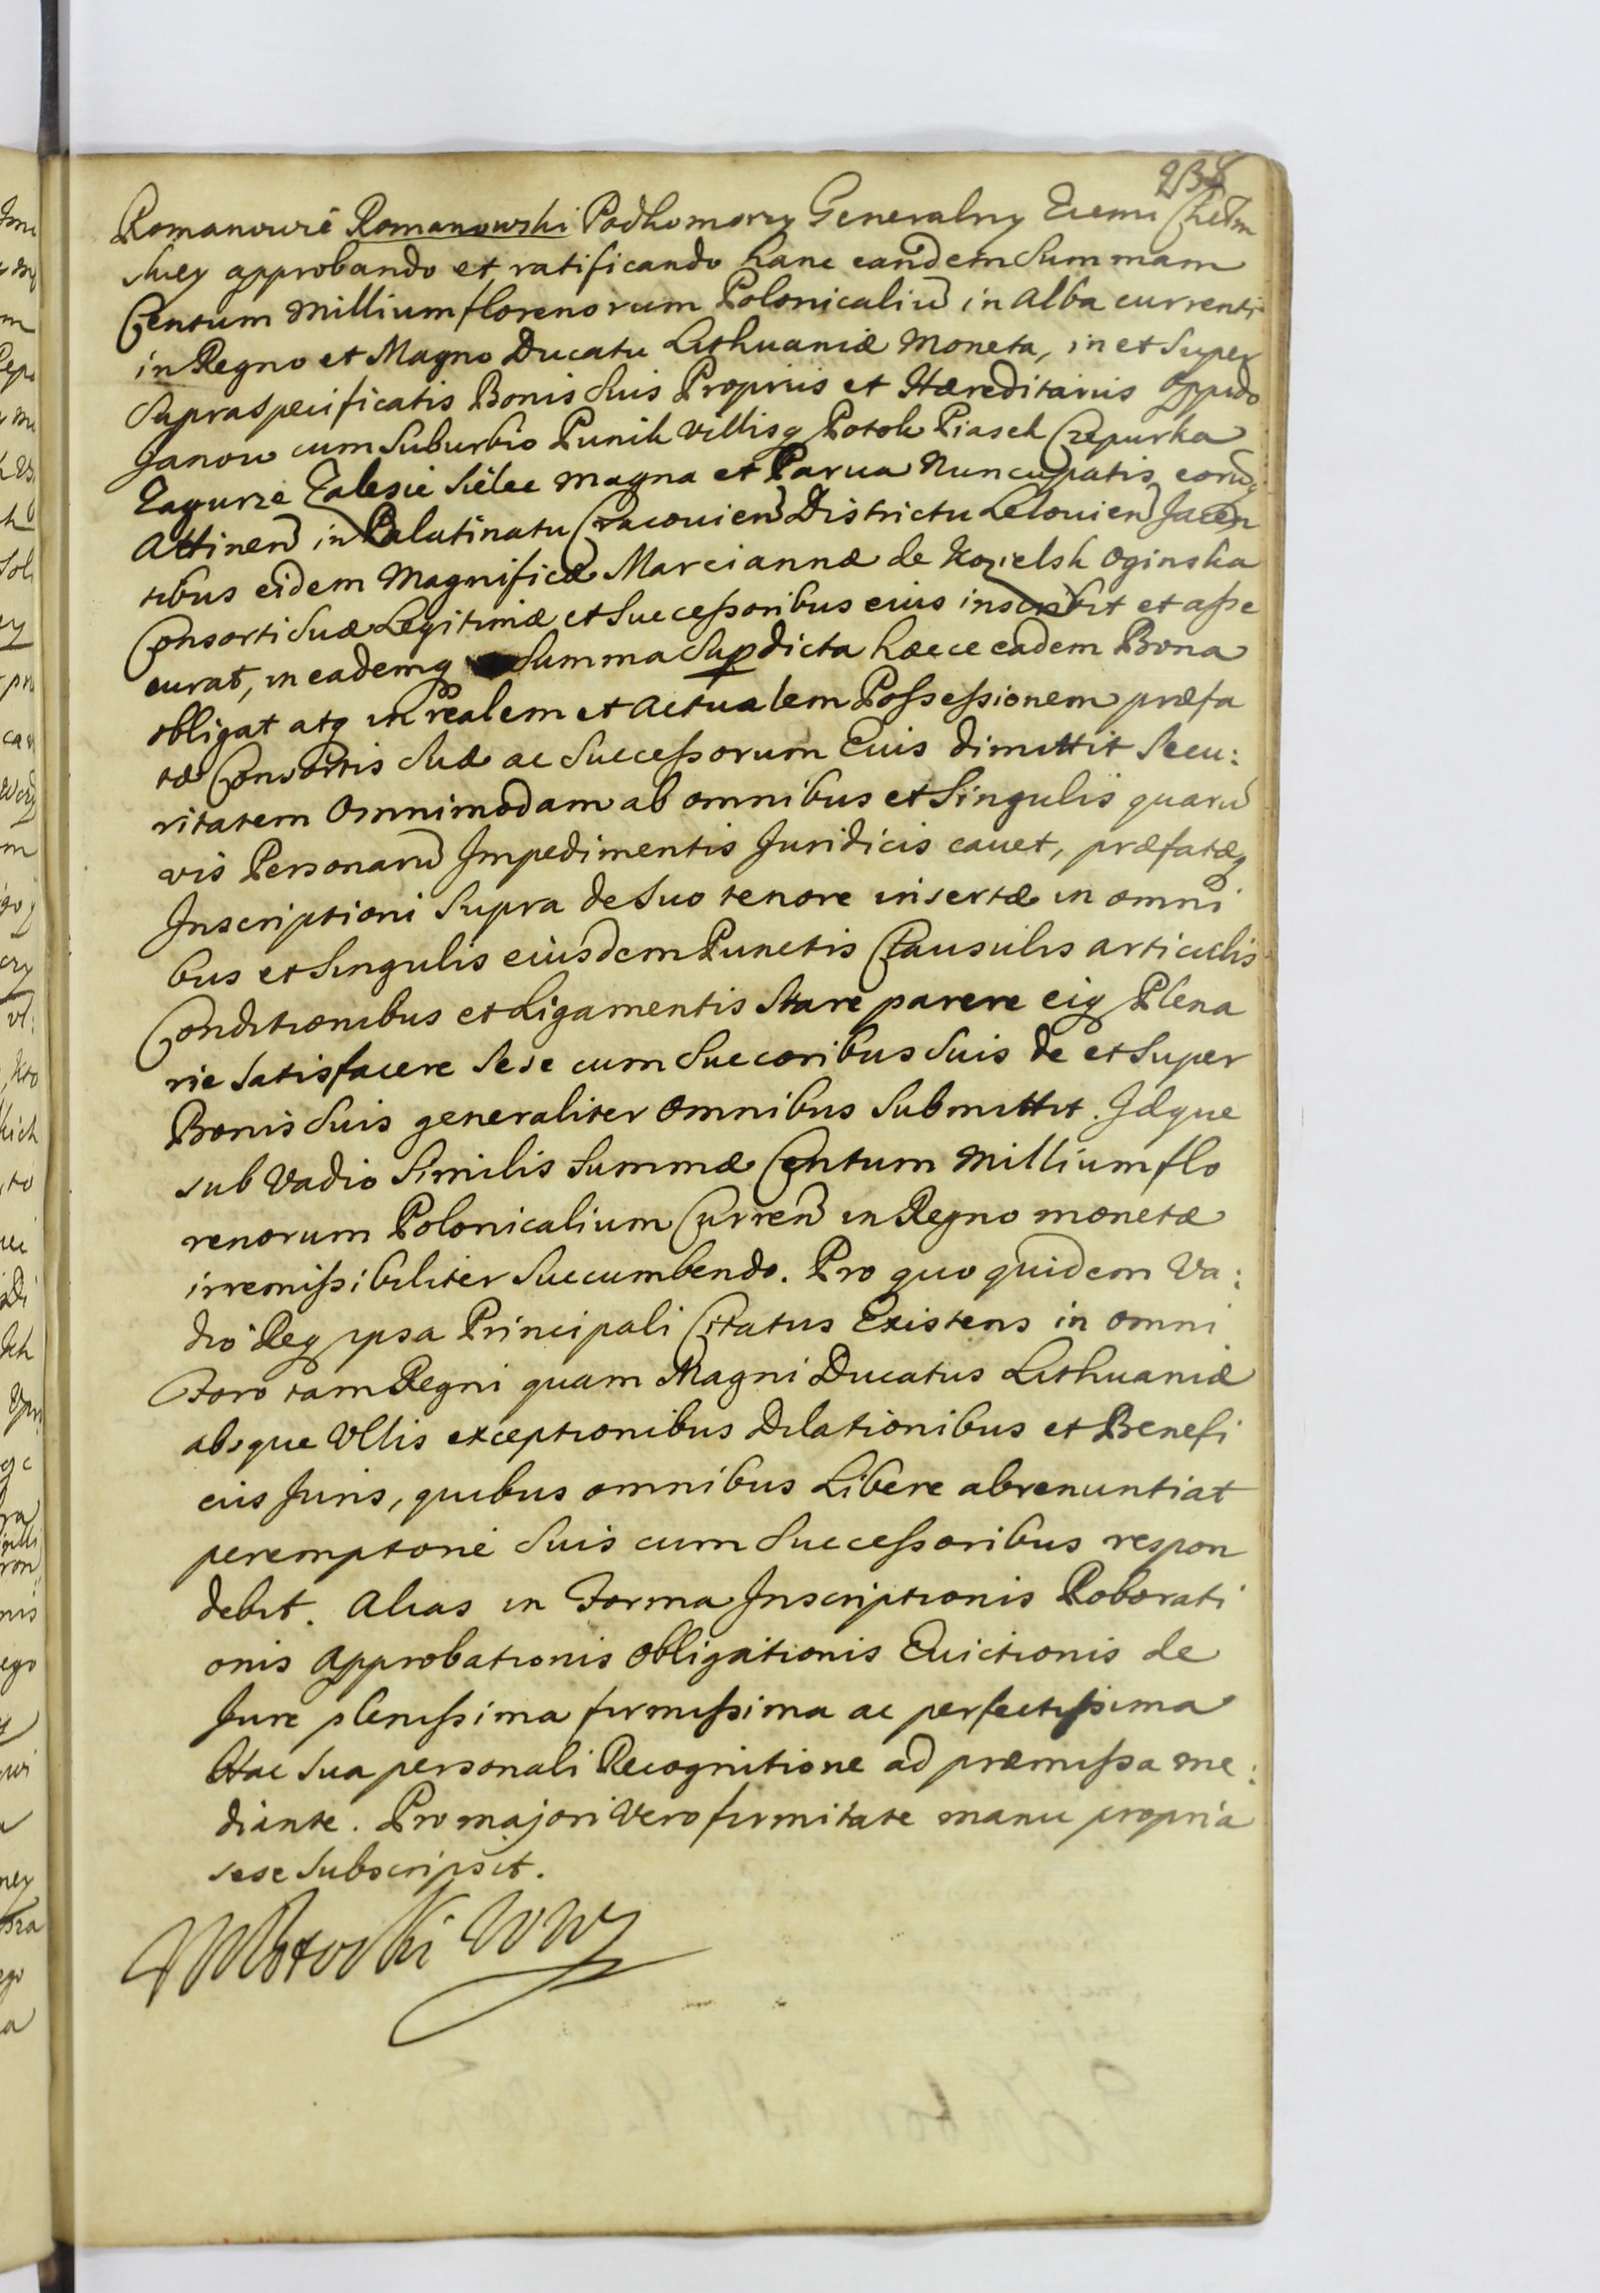 238
Romanowie Romanowski Podkomorzy Generalny Ziemi Chełm
skiey approbando et ratificando hanc eandem Summam
Centum Millium florenorum Polonicaliu in alba currenti
in Regno et Magno Ducatu Lithuaniæ Moneta, in et Super
Supraspecificatis Bonis Suis Proprijs et Hæreditarijs Oppido
Janow cum Suburbio Ponik Villisq Potok Piasek Czepurka
Zagurze Zalesie Sielec magna et Parua Nuncupatis eorūq
Attinen in Palatinatu Cracouien Districtu Lelouien Jacen
tibus eidem Magnificæ Marciannæ de Kozielsk Oginska
Consorti Suæ Legitimæ et Successoribus eius inscribit et asse
curat, in eademq Summa Supdicta hæcce eadem Bona
obligat atq in realem et actualem Possessionem præfa
tæ Consortis Suæ ac Successorum Euis dimittit Secu:
ritatem Omnimodam ab omnibus et Singulis quarū
vis Personarū Impedimentis Juridicis cauet, præfatæq
Inscriptioni Supra de Suo tenore insertæ in omni
bus et Singulis eiusdem Punctis Clausulis articulis
Conditionibus et Ligamentis Stare parere eiq Plena
rie Satisfacere Sese cum Succoribus Suis de et Super
Bonis Suis generaliter Omnibus Submittit. Idque
sub Vadio Similis Summæ Centum Millium flo
renorum Polonicalium Curren in Regno monetæ
irremissibiliter Succumbendo. Pro quo quidem Va:
dio Req ipsa Principali Citatus Existens in omni
Foro tam Regni quam Magni Ducatus Lithuaniæ
absque Vllis exceptionibus Dilationibus et Benefi
cijs Juris, quibus omnibus Libere abrenuntiat
peremptorie Suis cum Successoribus respon
debit. Alias in Forma Inscriptionis Roborati
onis Approbationis Obligationis Euictionis de
Jure plenissima firmissima ac perfectissima
Hac Sua personali Recognitione ad præmissa me:
diante. Pro majori Vero firmitate manu propria
sese Subscripsit.